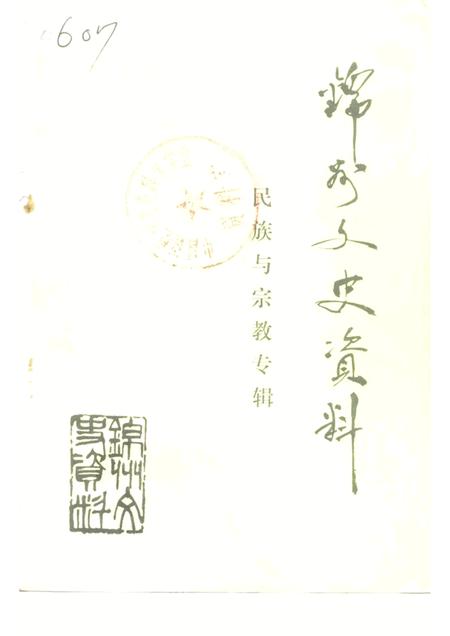 607
錦州文史資料
民族与宗教专辑
錦州文
史資料